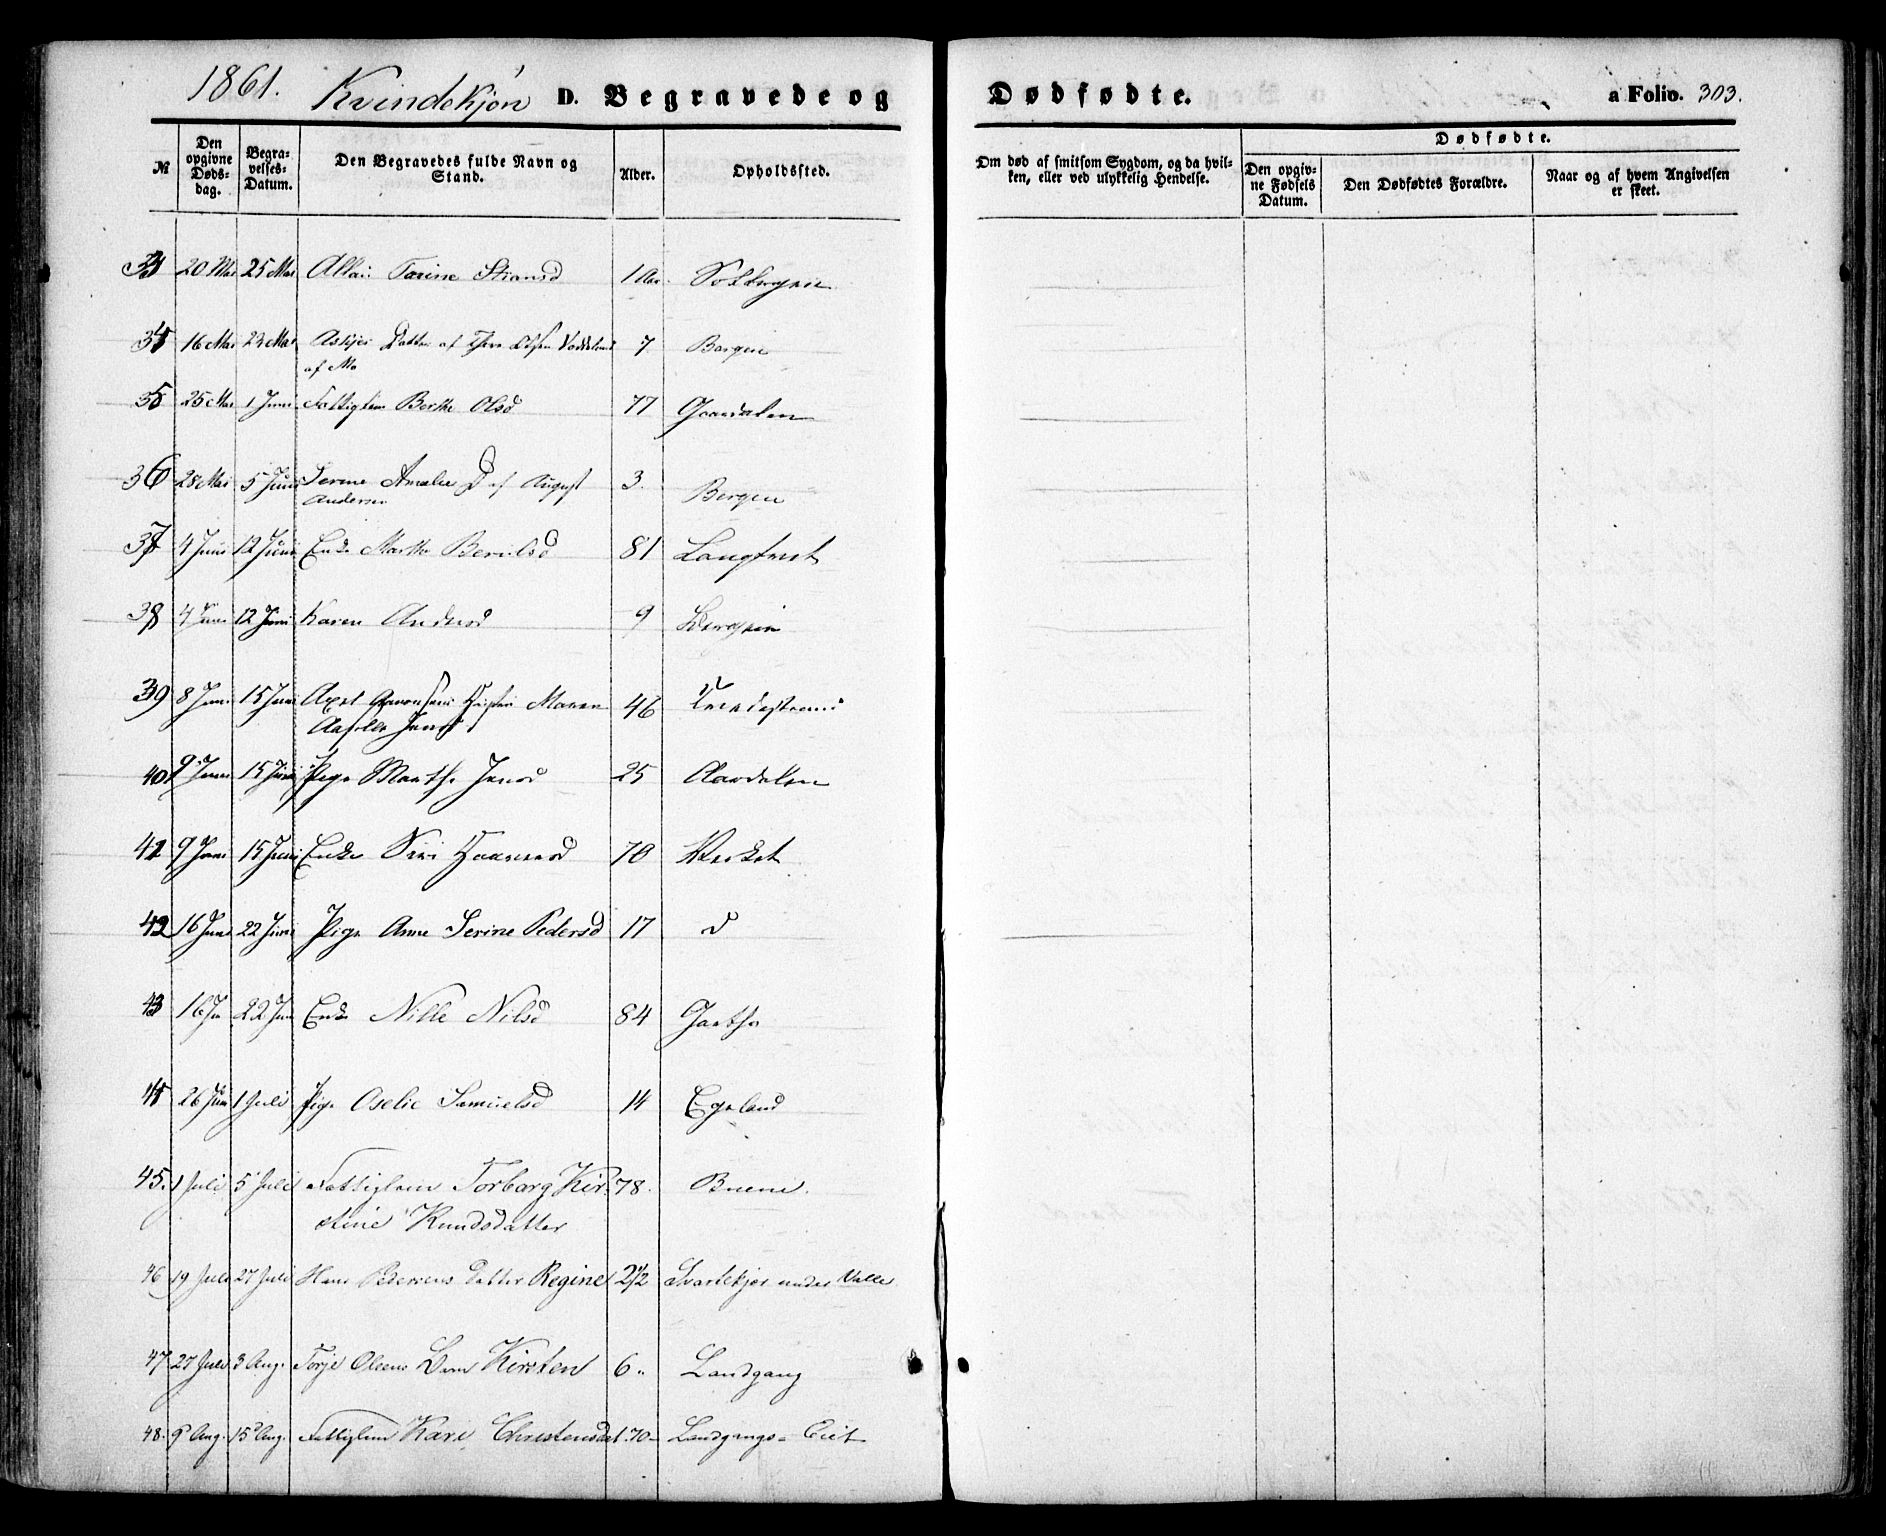 1861. Kvindekjøn D. Begravede og Dødfødte. a Folio. 303.
№ Den opgivne Døds-dag. Begra-velses-Datum. Den Begravedes fulde Navn og Stand. Alder. Opholdssted.
Om død af smitsom Sygdom, og da hvil-ken, eller ved ulykkelig Hendelse. Dødfødte. Den opgiv-ne Fødsels Datum. Den Dødfødtes Forældre. Naar og af hvem Angivelsen er skeet.
33 20 Mai 25 Mai Tarine 1 Aar.
34 16 Mai 23 Mai Datter af Olsen 7 Bergen
af Mo
35 25 Mai 1 Juni Fattiglem Berthe Olsd 77
36 28 Mai 5 Juni Serine Amalie D af August 3. Bergen
Andersen
37 4 Juni 12 Juni Enke Marthe 81
38 4 Juni 12 Juni Karen Andersd 9
39 8 Juni 15 Juni Axel Maren 46
Jensd
40 9 Juni 15 Juni Pige Marthe Jensd 25 Aardalen
41 9 Juni 15 Juni Enke Siri 70 Verket
42 16 Juni 22 Juni Pige Anne Serine Pedersd 17 d
43 16 Ju 22 Jun Enke Nille Nilsd 84
44 26 Juni 1 Juli Pige Aselie Samuelsd 14 Egeland
45. 1 Juli 5 Juli Fattiglem Torborg Kir- 78. Buene.
stine Knudsdatter
46 19 Juli 27 Juli Hans Pedersens datter Regine 2½ Svartekjær under Valle
47 27 Juli 3 Aug. Torje Olsens Barn Kirsten 6 " Landgang
48. 9 Aug. 15 Aug. Fattiglem Kari Christensdat. 70 - Landgangs- Eiet